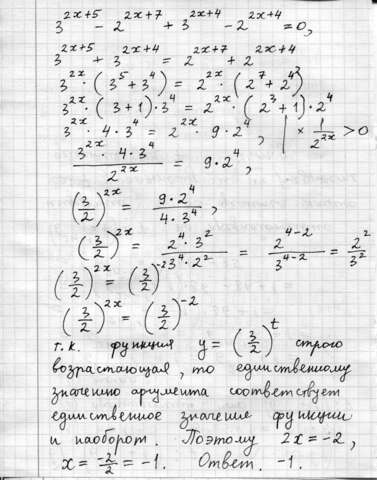 3^{2x+5} - 2^{2x+7} + 3^{2x+4} - 2^{2x+4} = 0,
3^{2x+5} + 3^{2x+4} = 2^{2x+7} + 2^{2x+4}
3^{2x} · (3^5 + 3^4) = 2^{2x} · (2^7 + 2^4)
3^{2x} · (3 + 1) · 3^4 = 2^{2x} · (2^3 + 1) · 2^4
3^{2x} · 4 · 3^4 = 2^{2x} · 9 · 2^4, | × \frac{1}{2^{2x}} > 0
\frac{3^{2x} · 4 · 3^4}{2^{2x}} = 9 · 2^4,
(\frac{3}{2})^{2x} = \frac{9 · 2^4}{4 · 3^4},
(\frac{3}{2})^{2x} = \frac{2^4 · 3^2}{3^4 · 2^2} = \frac{2^{4-2}}{3^{4-2}} = \frac{2^2}{3^2}
(\frac{3}{2})^{2x} = (\frac{3}{2})^{-2}
(\frac{3}{2})^{2x} = (\frac{3}{2})^{-2}
т.к. функция y = (\frac{3}{2})^t строго
возрастающая, то единственному
значению аргумента соответствует
единственное значение функции
и наоборот. Поэтому 2x = -2,
x = \frac{-2}{2} = -1. Ответ. -1.